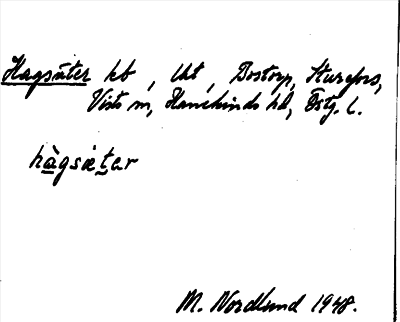 Hagsäter kb, Uht, Bostorp, Sturefors,
Vists sn, Hanekinds hd, Östg. l.
hàgsætar
M. Nordlund 1948.